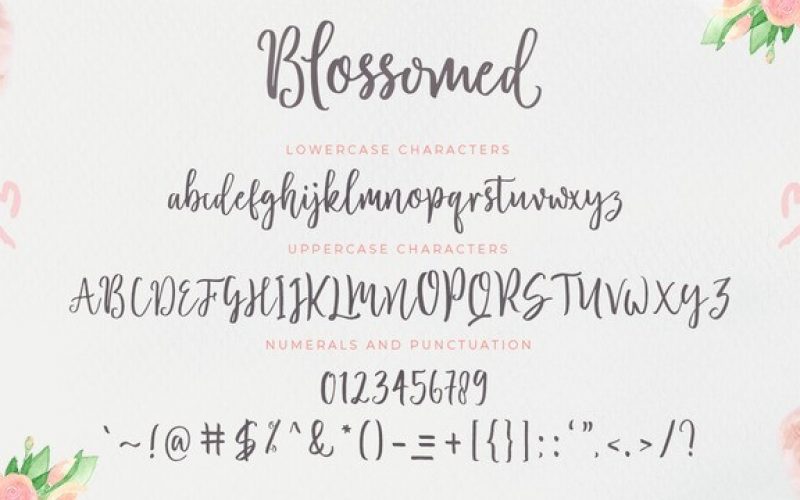 Blossomed
LOWERCASE CHARACTERS
abcdefghijklmnopqrstuvwxyz
UPPERCASE CHARACTERS
ABCDEFGHIJKLMNOPQRSTUVWXYZ
NUMERALS AND PUNCTUATION
0123456789
`~!@#$%^&*()-=+[{}];:‘”,<.>/?